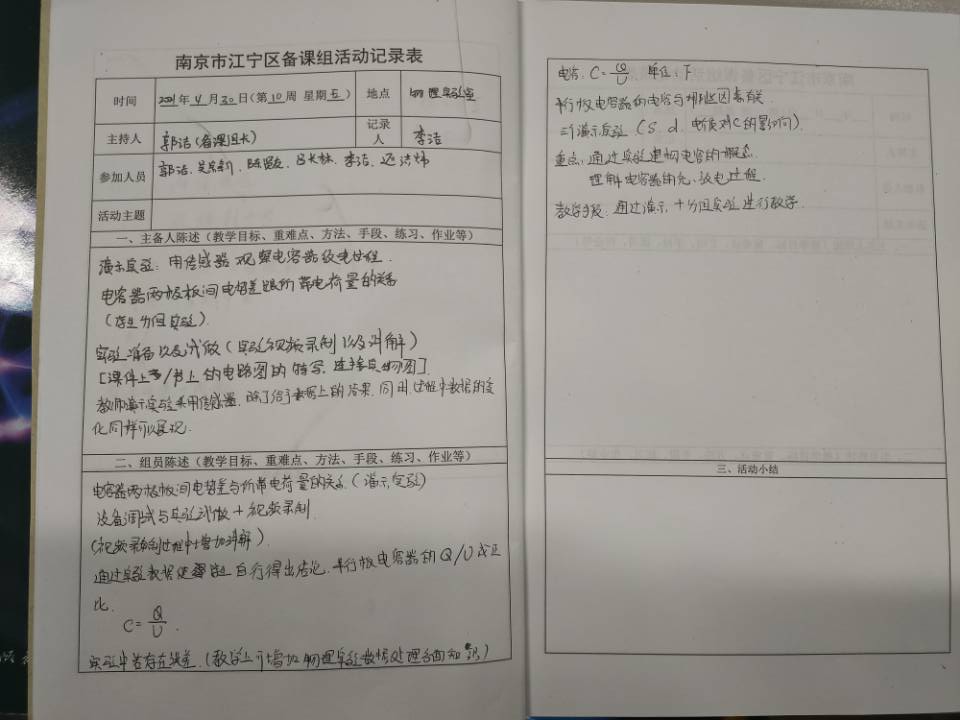 南京市江宁区备课组活动记录表
时间 2021年4月30日(第10周 星期五) 地点 物理实验室
主持人 郭洁(备课组长) 记录人 李洁
参加人员 郭洁、李洁
活动主题
一、主备人陈述(教学目标、重难点、方法、手段、练习、作业等)
演示实验:用传感器观察电容器放电过程.
电容器两极板间电势差跟所带电荷量的关系
(学生分组实验).
实验准备以及试做(实验视频录制以及讲解)
[课件上/书上的电路图的特写,连接实物图]
教师演示实验采用传感器,除了给予数据上的结果,同时,过程中数据的变
化同样可以展现.
二、组员陈述(教学目标、重难点、方法、手段、练习、作业等)
电容器两极板间电势差与所带电荷量的关系(演示实验)
设备调试与实验试做+视频录制
(视频录制过程中增加讲解).
通过实验数据使学生自行得出结论,平行板电容器的Q/U成正
比.
C=Q/U.
实验中若存在误差.(教学上可增加物理实验数据处理方面知识)
电容:C=Q/U 单位:F
平行板电容器的电容与哪些因素有关.
三个演示实验(S、d、电介质对C的影响).
重点:通过实验建构电容的概念.
理解电容器的充、放电过程.
教学手段:通过演示+分组实验进行教学.
三、活动小结